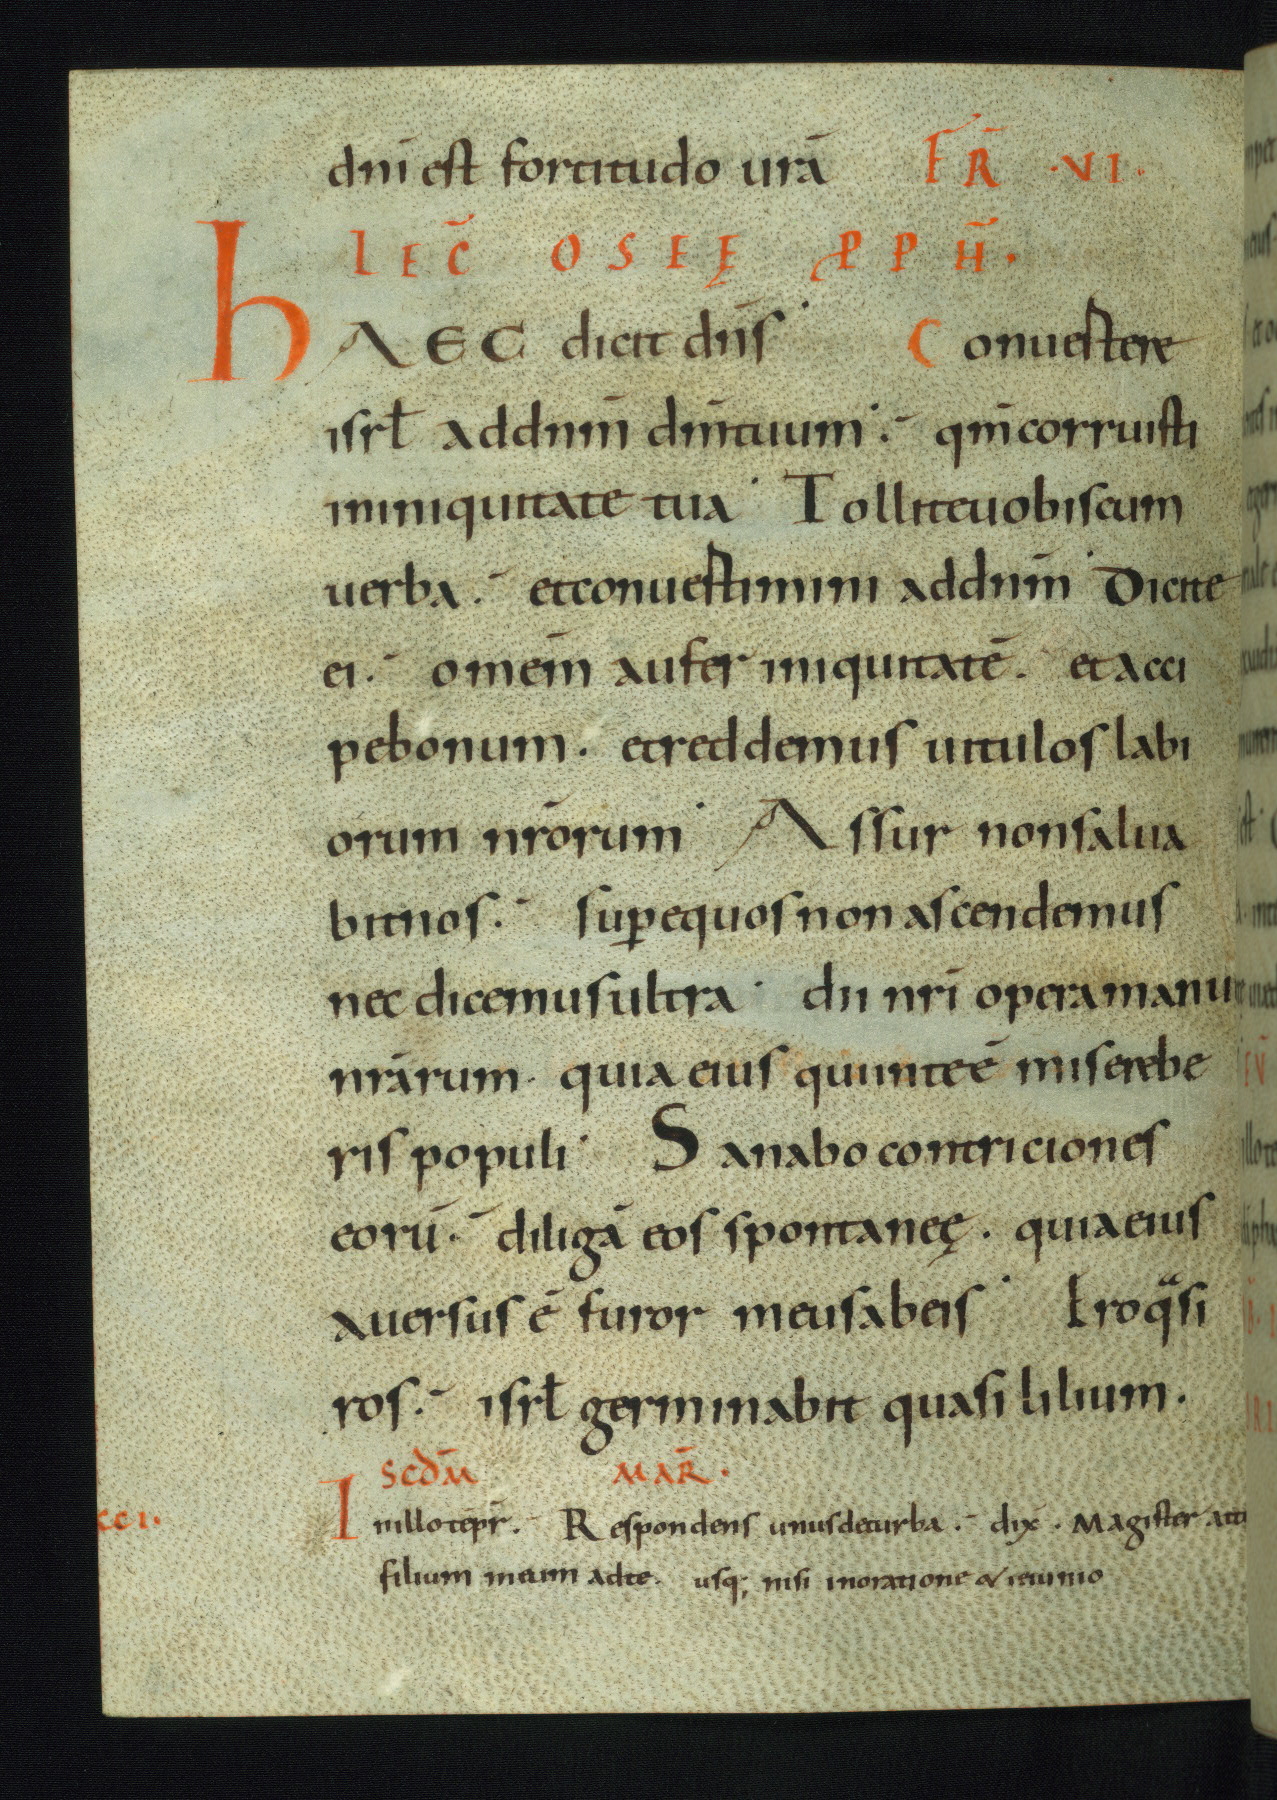 dnī est fortitudo urā FR̄ · VI ·
LEC̄ OSEĘ PPH̄ ·
hAEC dicit dn̄s Conuertere
isrł ad dnm̄ dm̄ tuum · qm̄ corruisti
in iniquitate tua Tollite uobiscum
uerba · et conuertimini ad dnm̄ Dicite
ei · omem̄ aufer iniquitatē · et acci
pe bonum · et reddemus uitulos labi
orum nrōrum Assur non salua
bit nos · suꝑ equos non ascendemus
nec dicemus ultra · dii nrī opera manu
nrārum · quia eius qui in te ē misere be
ris populi Sanabo contriciones
eorū · diligā eos spontaneę · quia eius
auersus ē furor meus ab eis Ero q̄si
ros · isrł germinabit quasi lilium ·
SCDM̄ MAR̄ ·
CCI · In illo tēpr̄ · Respondens unus de turba · dix̄ · Magister atti
filium meum ad te · usq; nisi in oratione & ieiunio